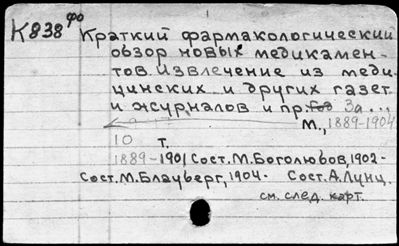 К838 фо Краткий фармакологический
обзор новых медикамен-
тов. Извлечение из меди-
цинских и других газет
и журналов и пр. Год За ...
М., 1889-1904
10 т.
1889-1901 Сост. М. Боголюбов, 1902-
Сост. М. Блауберг, 1904- Сост. А. Лунц.
см. след. карт.